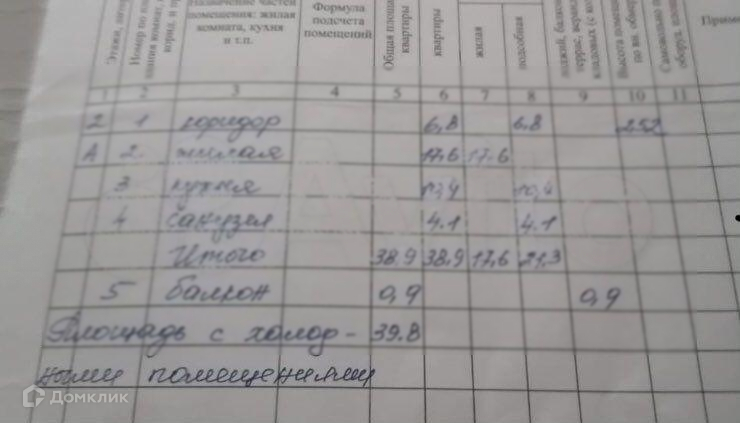 Назначение частей
помещения: жилая
комната, кухня
и т.п.
Формула
подсчета
помещений
Общая площадь
квартиры
квартиры
жилая
подсобная
1 2 3 4 5 6 7 8 9 10 11
2 1 коридор 6,8 6,8 2,52
А 2 жилая 17,6 17,6
3 кухня 10,4 10,4
4 санузел 4.1 4.1
Итого 38.9 38,9 17,6 21,3
5 балкон 0,9 0,9
Площадь с холод- 39.8
ными помещениями
Домклик